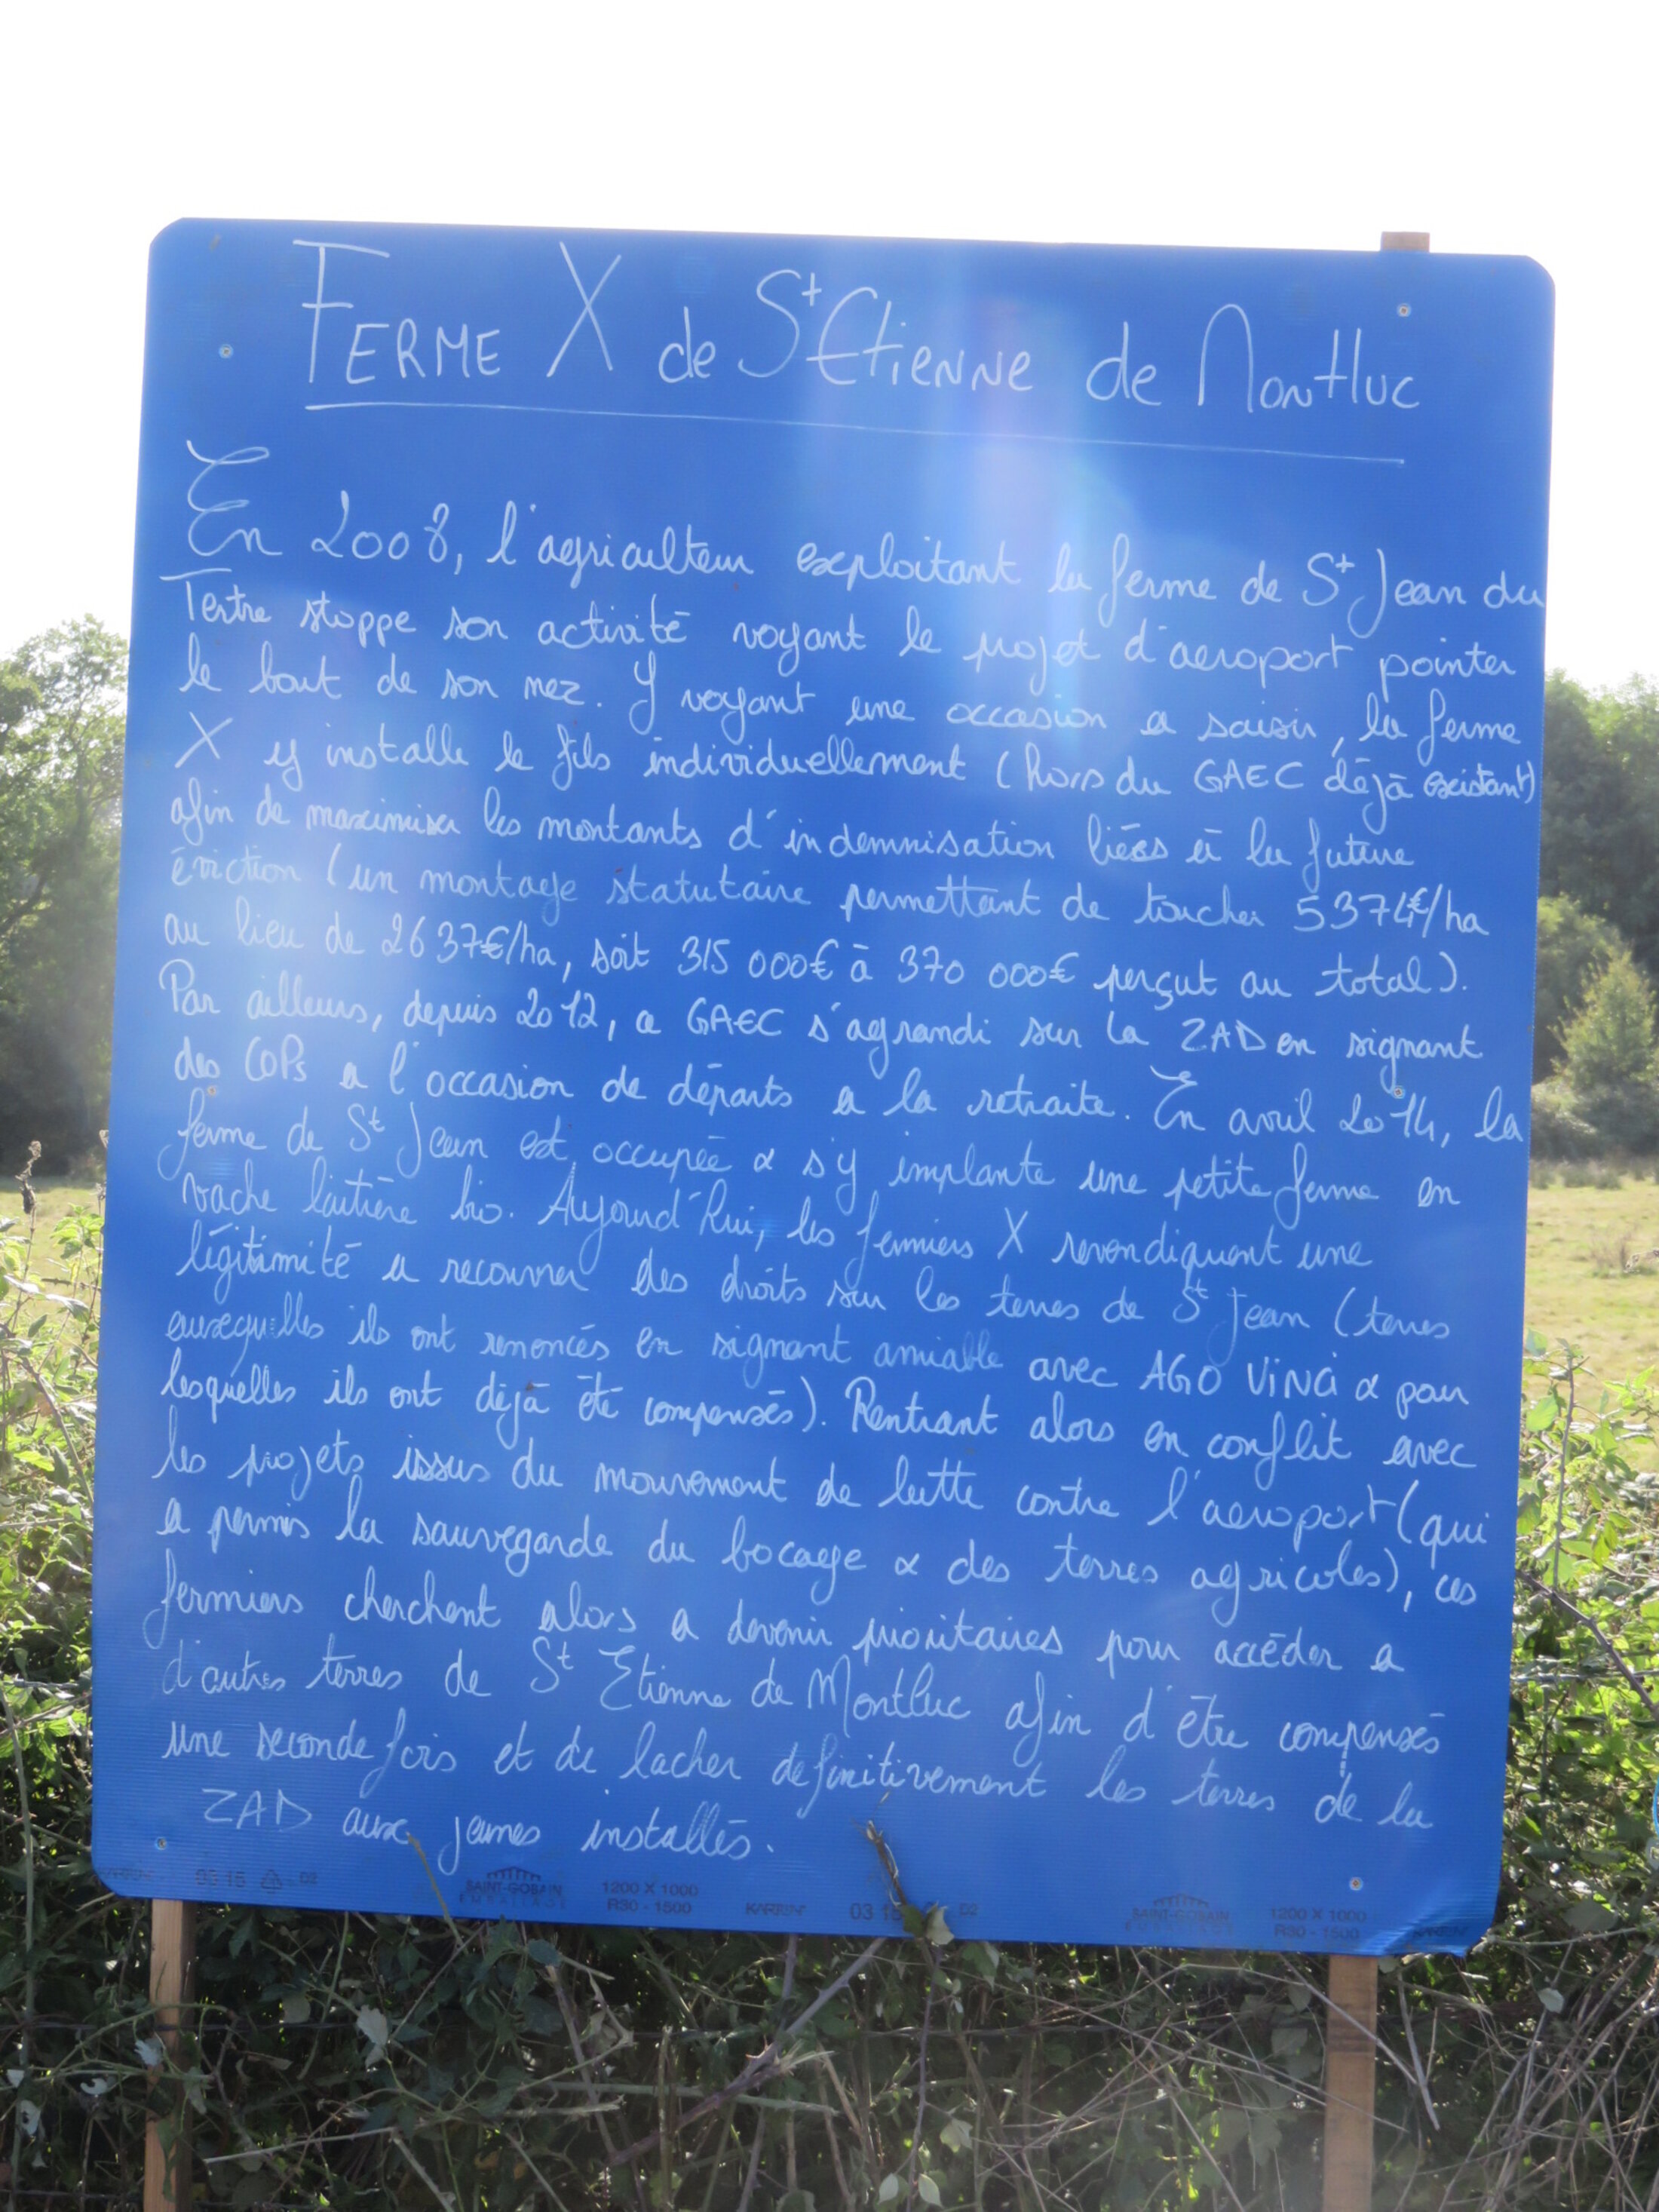 FERME X de St Etienne de Montluc
En 2008, l'agriculteur exploitant la ferme de St Jean du
Tertre stoppe son activité voyant le projet d'aeroport pointer
le bout de son nez. Y voyant une occasion a saisir, la ferme
X y installe le fils individuellement (hors du GAEC déjà existant)
afin de maximiser les montants d'indemnisation liées à la future
éviction (un montage statutaire permettant de toucher 5374€/ha
au lieu de 2637€/ha, soit 315 000€ à 370 000€ perçut au total).
Par ailleurs, depuis 2012, ce GAEC s'agrandi sur la ZAD en signant
des COPs a l'occasion de départs a la retraite. En avril 2014, la
ferme de St Jean est occupée & s'y implante une petite ferme en
vache laitière bio. Aujourd'hui, les fermiers X revendiquent une
légitimité a recouvrer des droits sur les terres de St Jean (terres
auxquelles ils ont renoncés en signant amiable avec AGO VINCI & pour
lesquelles ils ont déjà été compensés). Rentrant alors en conflit avec
les projets issus du mouvement de lutte contre l'aeroport (qui
a permis la sauvegarde du bocage & des terres agricoles), ces
fermiers cherchent alors a devenir prioritaires pour accéder a
d'autres terres de St Etienne de Montluc afin d'être compensés
une seconde fois et de lacher definitivement les terres de la
ZAD aux jeunes installés.
03 15 D2 SAINT-GOBAIN EMBALLAGE 1200 X 1000 R30 - 1500 KARTON 03 15 D2 SAINT-GOBAIN 1200 X 1000 R30 - 1500